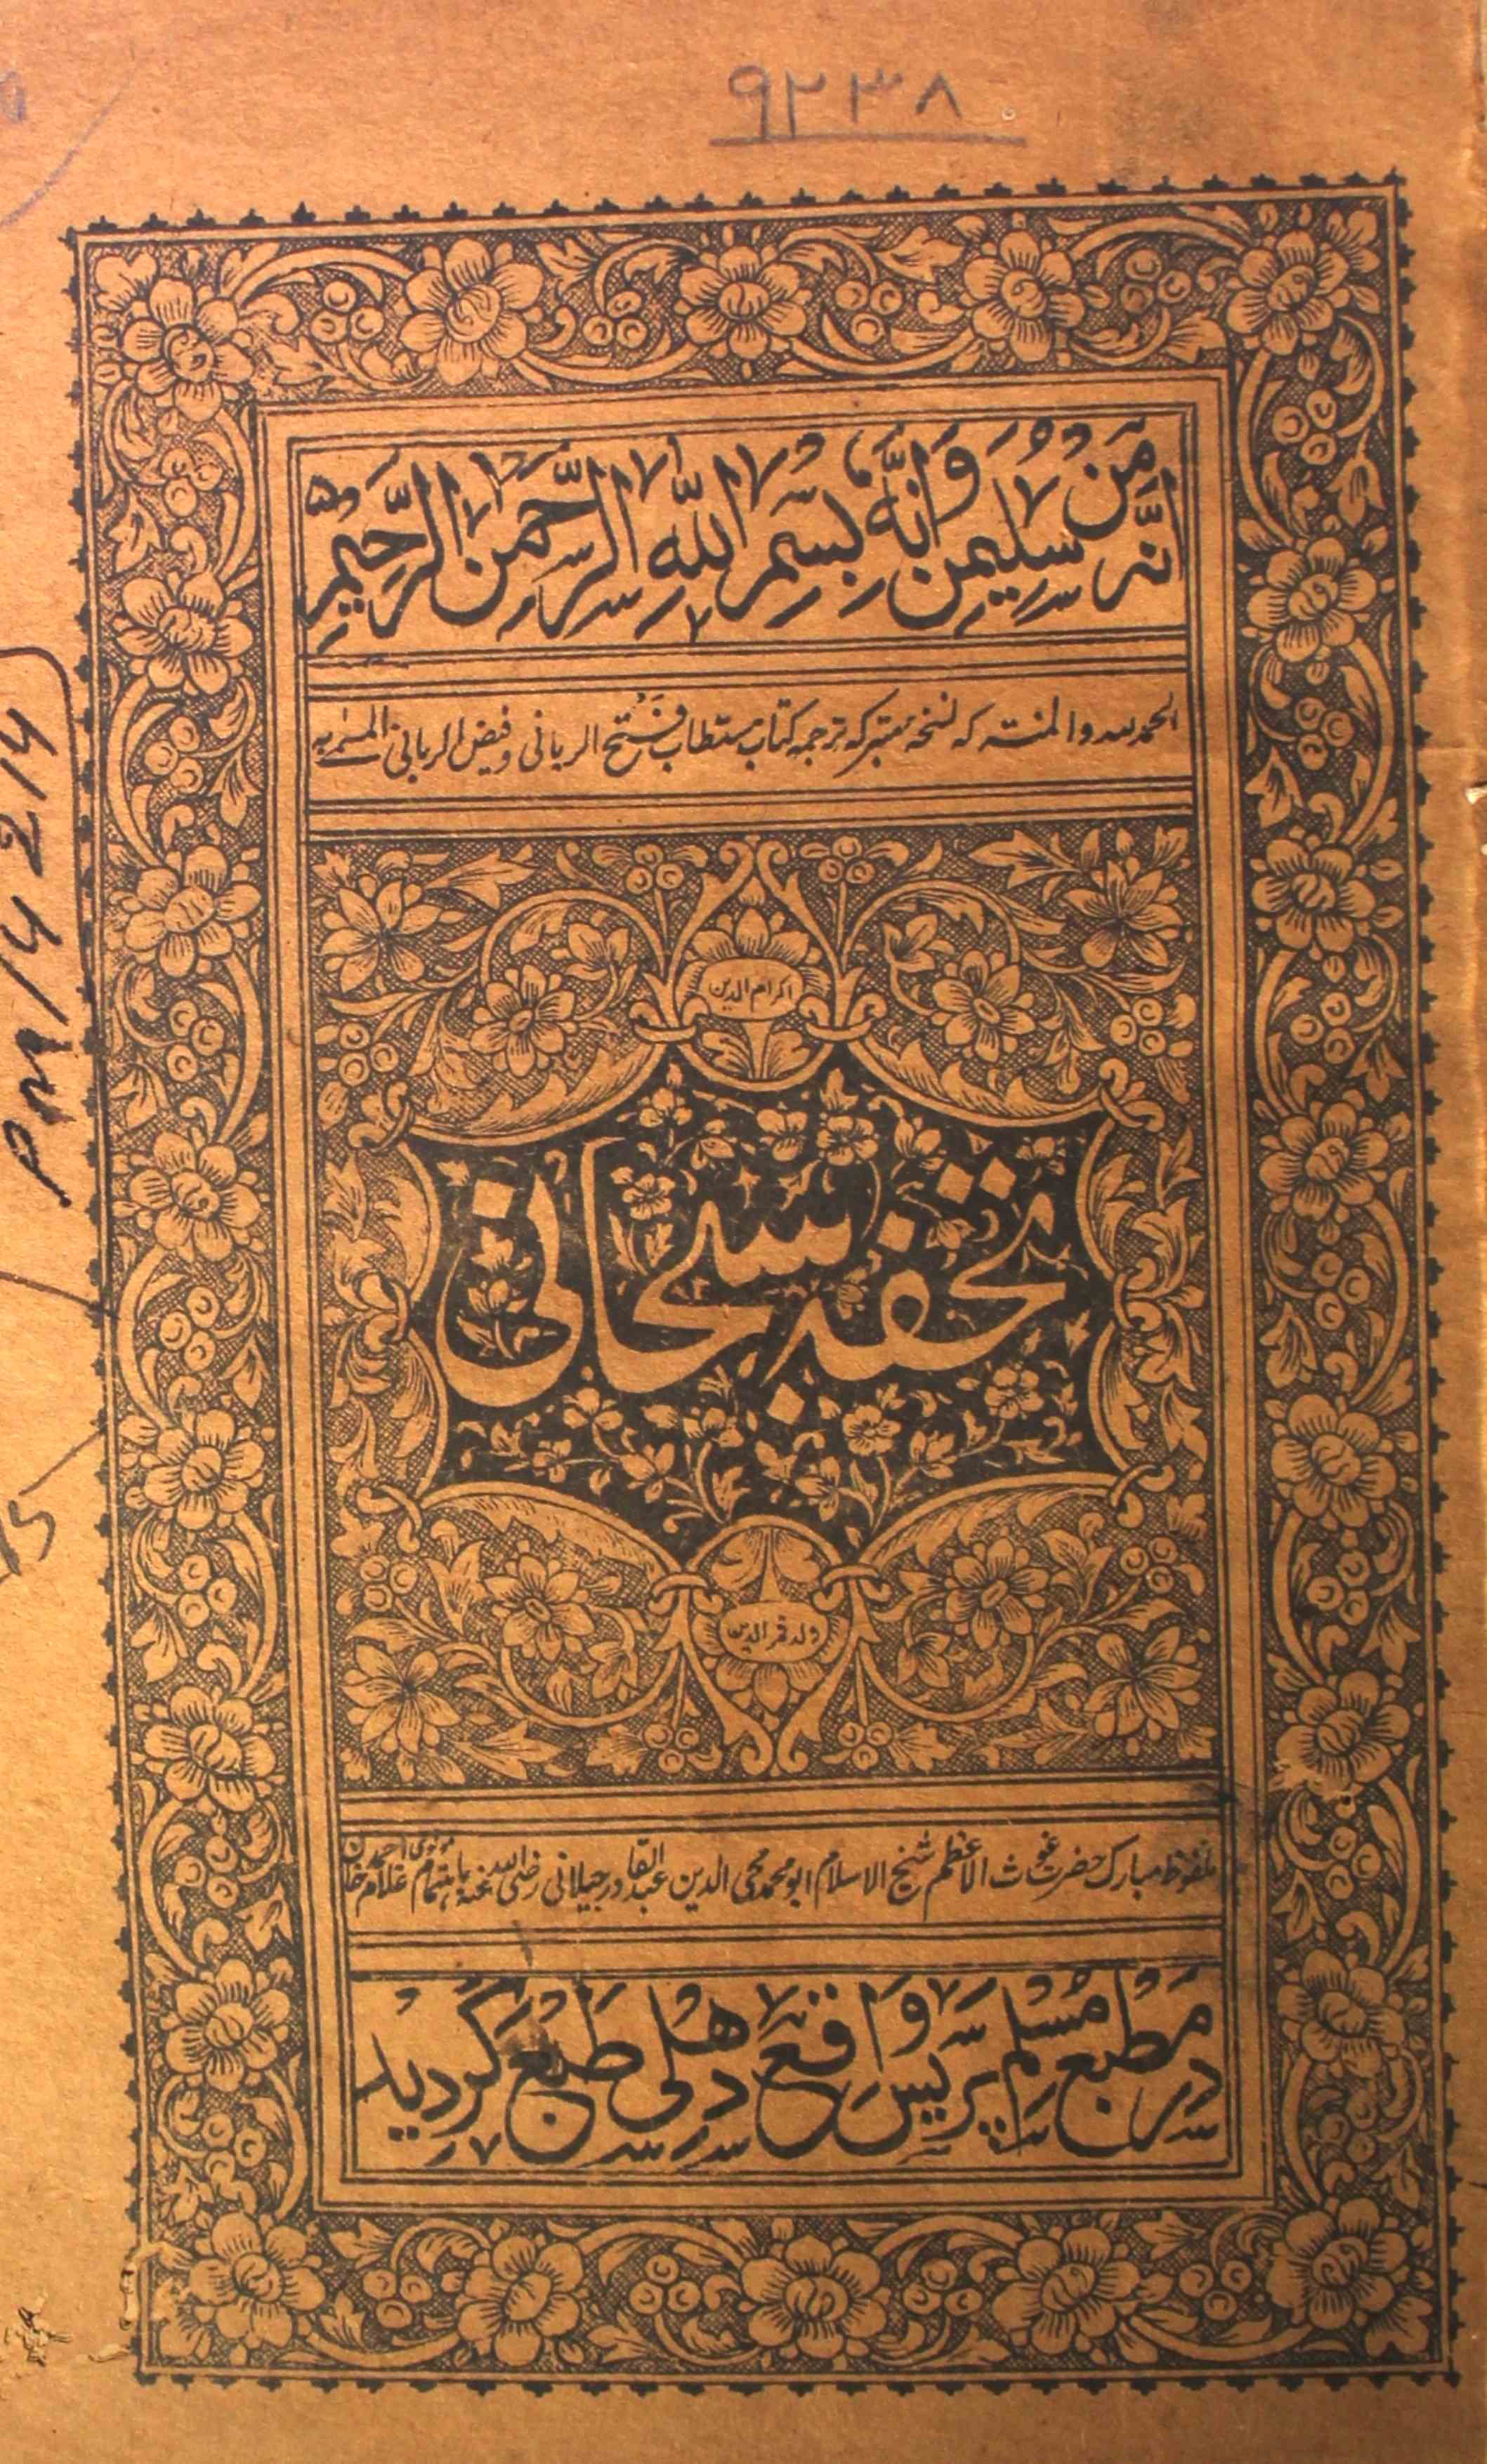 ۹۲۳۸
اِنَّہٗ مِنْ سُلَیْمٰنَ وَاِنَّہٗ بِسْمِ اللّٰہِ الرَّحْمٰنِ الرَّحِیْمِ
الحمد للہ والمنتہ کہ نسخہ متبرکہ ترجمہ کتاب مستطاب فتح الربانی و فیض الربانی المسمٰی بہ
اکرام الدین
تحفہ سبحانی
ولد قمر الدین
ملفوظ مبارک حضرت غوث الاعظم شیخ الاسلام ابو محمد محی الدین عبد القادر جیلانی رضی اللہ عنہ باہتمام مولوی غلام احمد خان
در مطبع مسلم پریس واقع دہلی طبع گردید